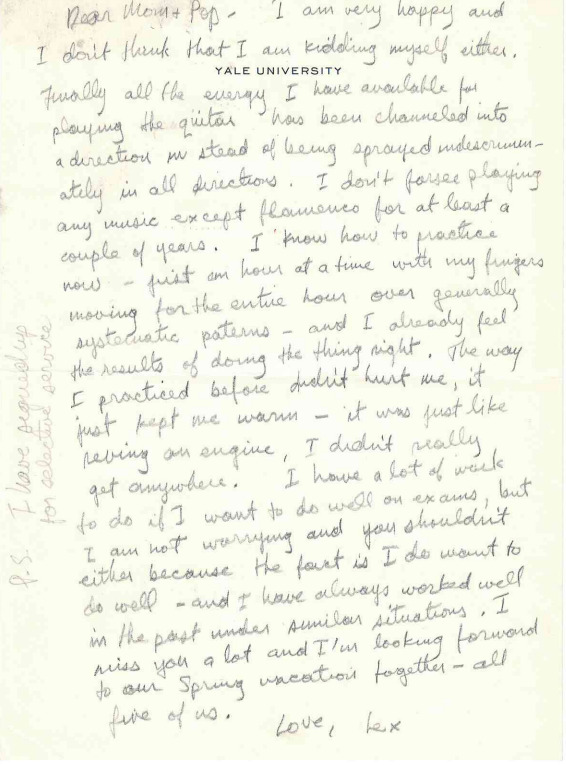 Dear Mom + Pop - I am very happy and
I don't think that I am kidding myself either.
YALE UNIVERSITY
Finally all the energy I have available for
playing the guitar has been channeled into
a direction in stead of being sprayed indescrimin-
ately in all directions. I don't forsee playing
any music except flamenco for at least a
couple of years. I know how to practice
now - just an hour at a time with my fingers
moving for the entire hour over generally
systematic paterns - and I already feel
the results of doing the thing right. The way
I practiced before didn't hurt me, it
just kept me warm - it was just like
reving an engine, I didn't really
get anywhere. I have a lot of work
to do if I want to do well on exams, but
I am not worrying and you shouldn't
either because the fact is I do want to
do well - and I have always worked well
in the past under similar situations. I
miss you a lot and I'm looking forward
to our Spring vacation together - all
five of us.
Love, Lex
P.S. I have signed up
for selective service